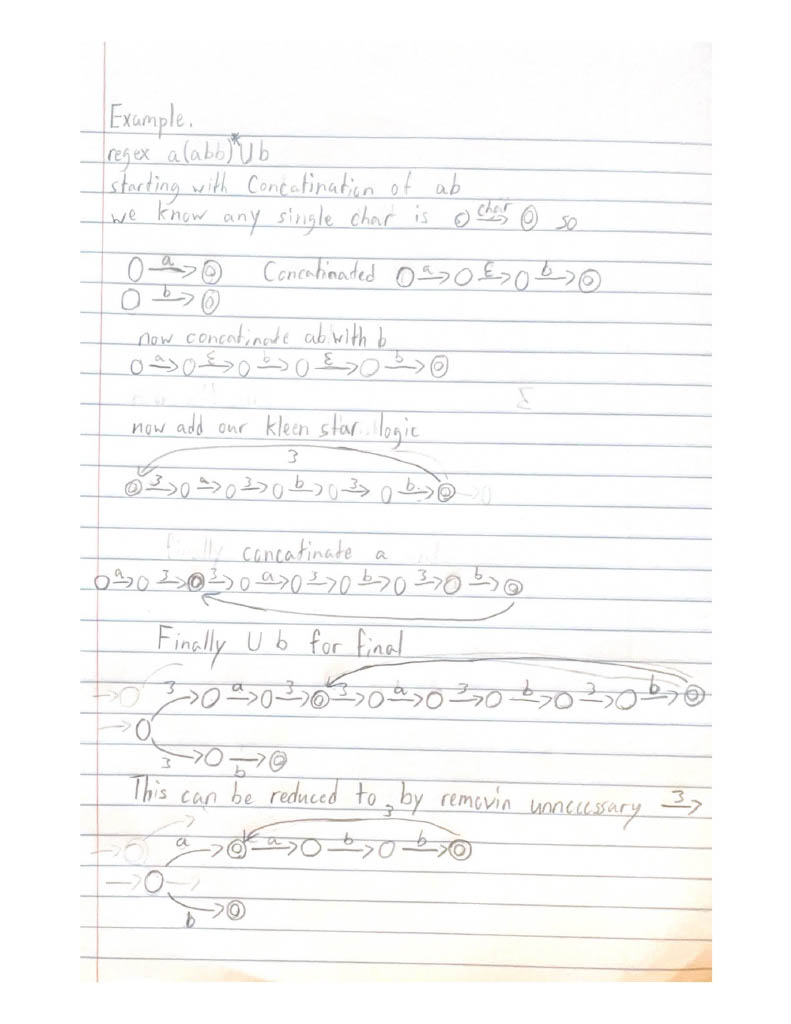 Example.
regex a(abb)*∪b
starting with Concatination of ab
we know any single char is O char→ ◎ so
O a→ ◎ Concatinated O a→ O ε→ O b→ ◎
O b→ ◎
now concatinate ab with b
O a→ O ε→ O b→ O ε→ O b→ ◎
now add our kleen star logic
3
◎ 3→ O a→ O 3→ O b→ O 3→ O b→ ◎
finally concatinate a
O a→ O 3→ ◎ 3→ O a→ O 3→ O b→ O 3→ O b→ ◎
Finally U b for final
3 O a→ O 3→ ◎ 3→ O a→ O 3→ O b→ O 3→ O b→ ◎
→ O
3 O b→ ◎
This can be reduced to by removin unneccessary 3→
3
a ◎ a→ O b→ O b→ ◎
→ O
b ◎